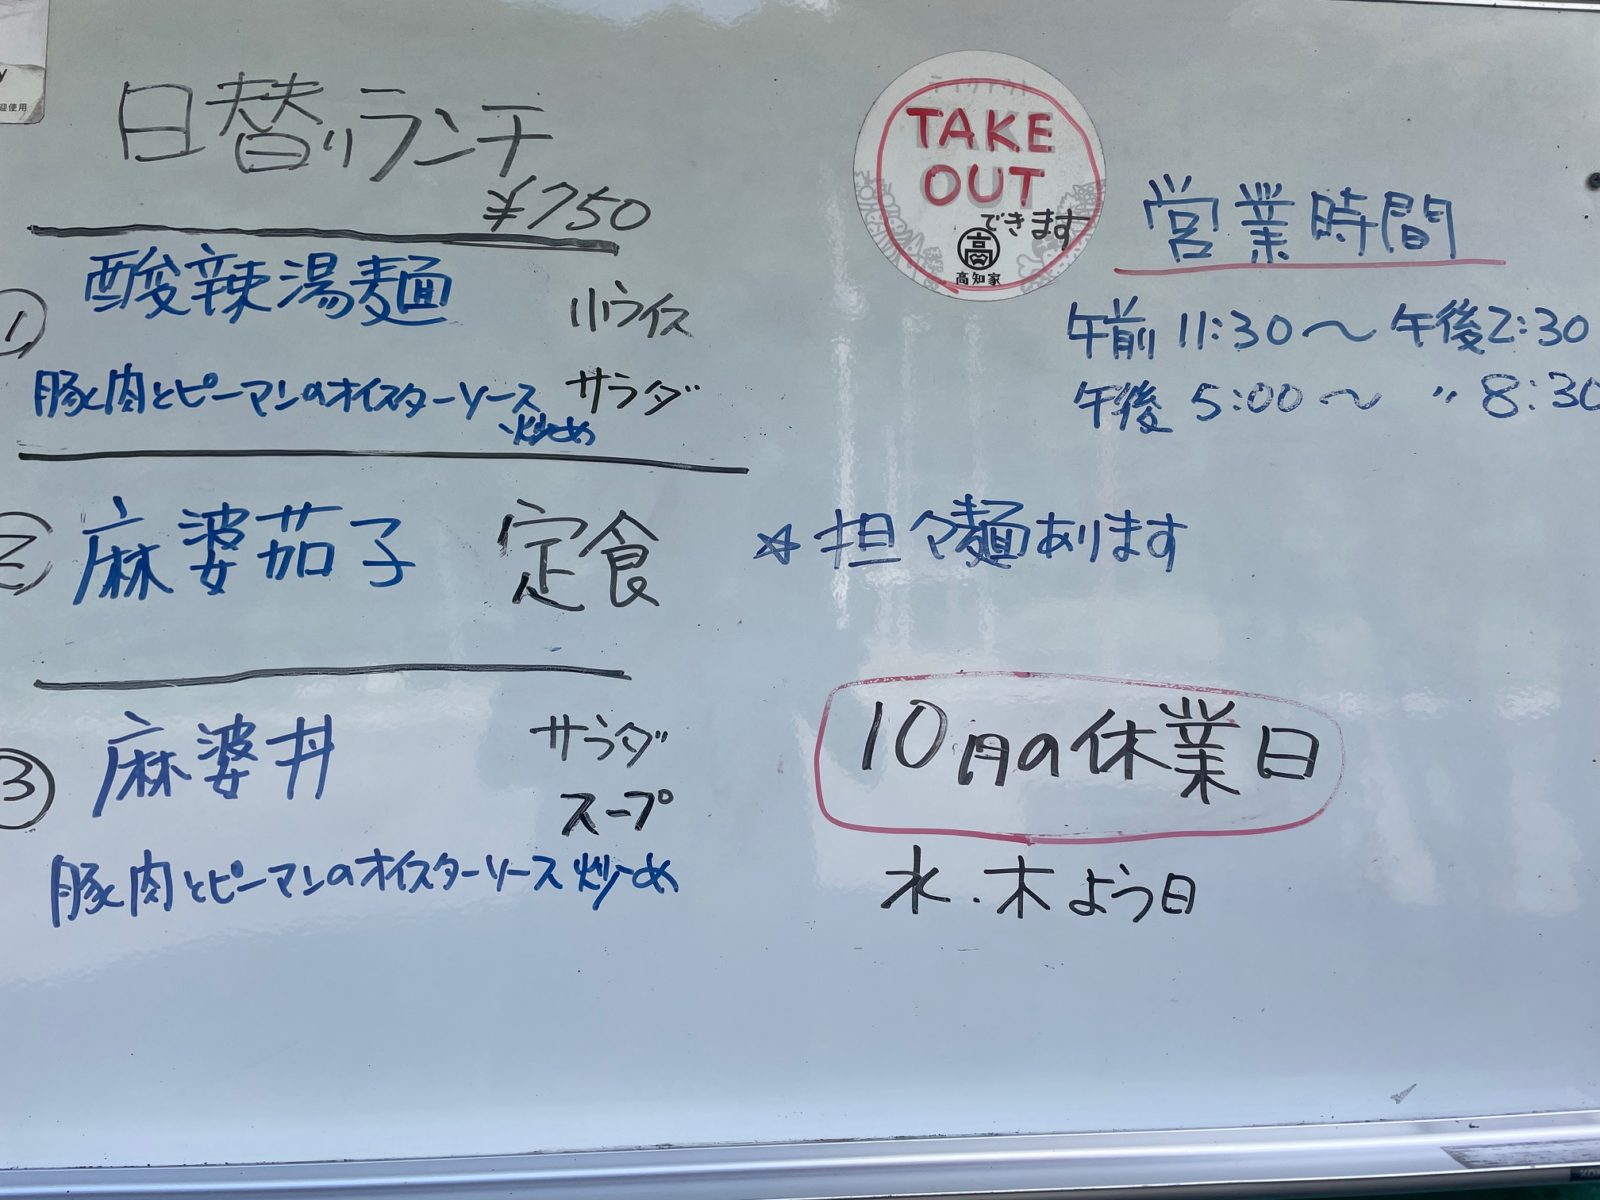 日替りランチ
¥750
① 酸辣湯麺 小ライス
豚肉とピーマンのオイスターソース サラダ
炒め
② 麻婆茄子 定食
③ 麻婆丼 サラダ
スープ
豚肉とピーマンのオイスターソース炒め
TAKE
OUT
できます
高
高知家
営業時間
午前 11:30〜午後2:30
午後 5:00〜 〃 8:30
☆担々麺あります
10月の休業日
水・木よう日